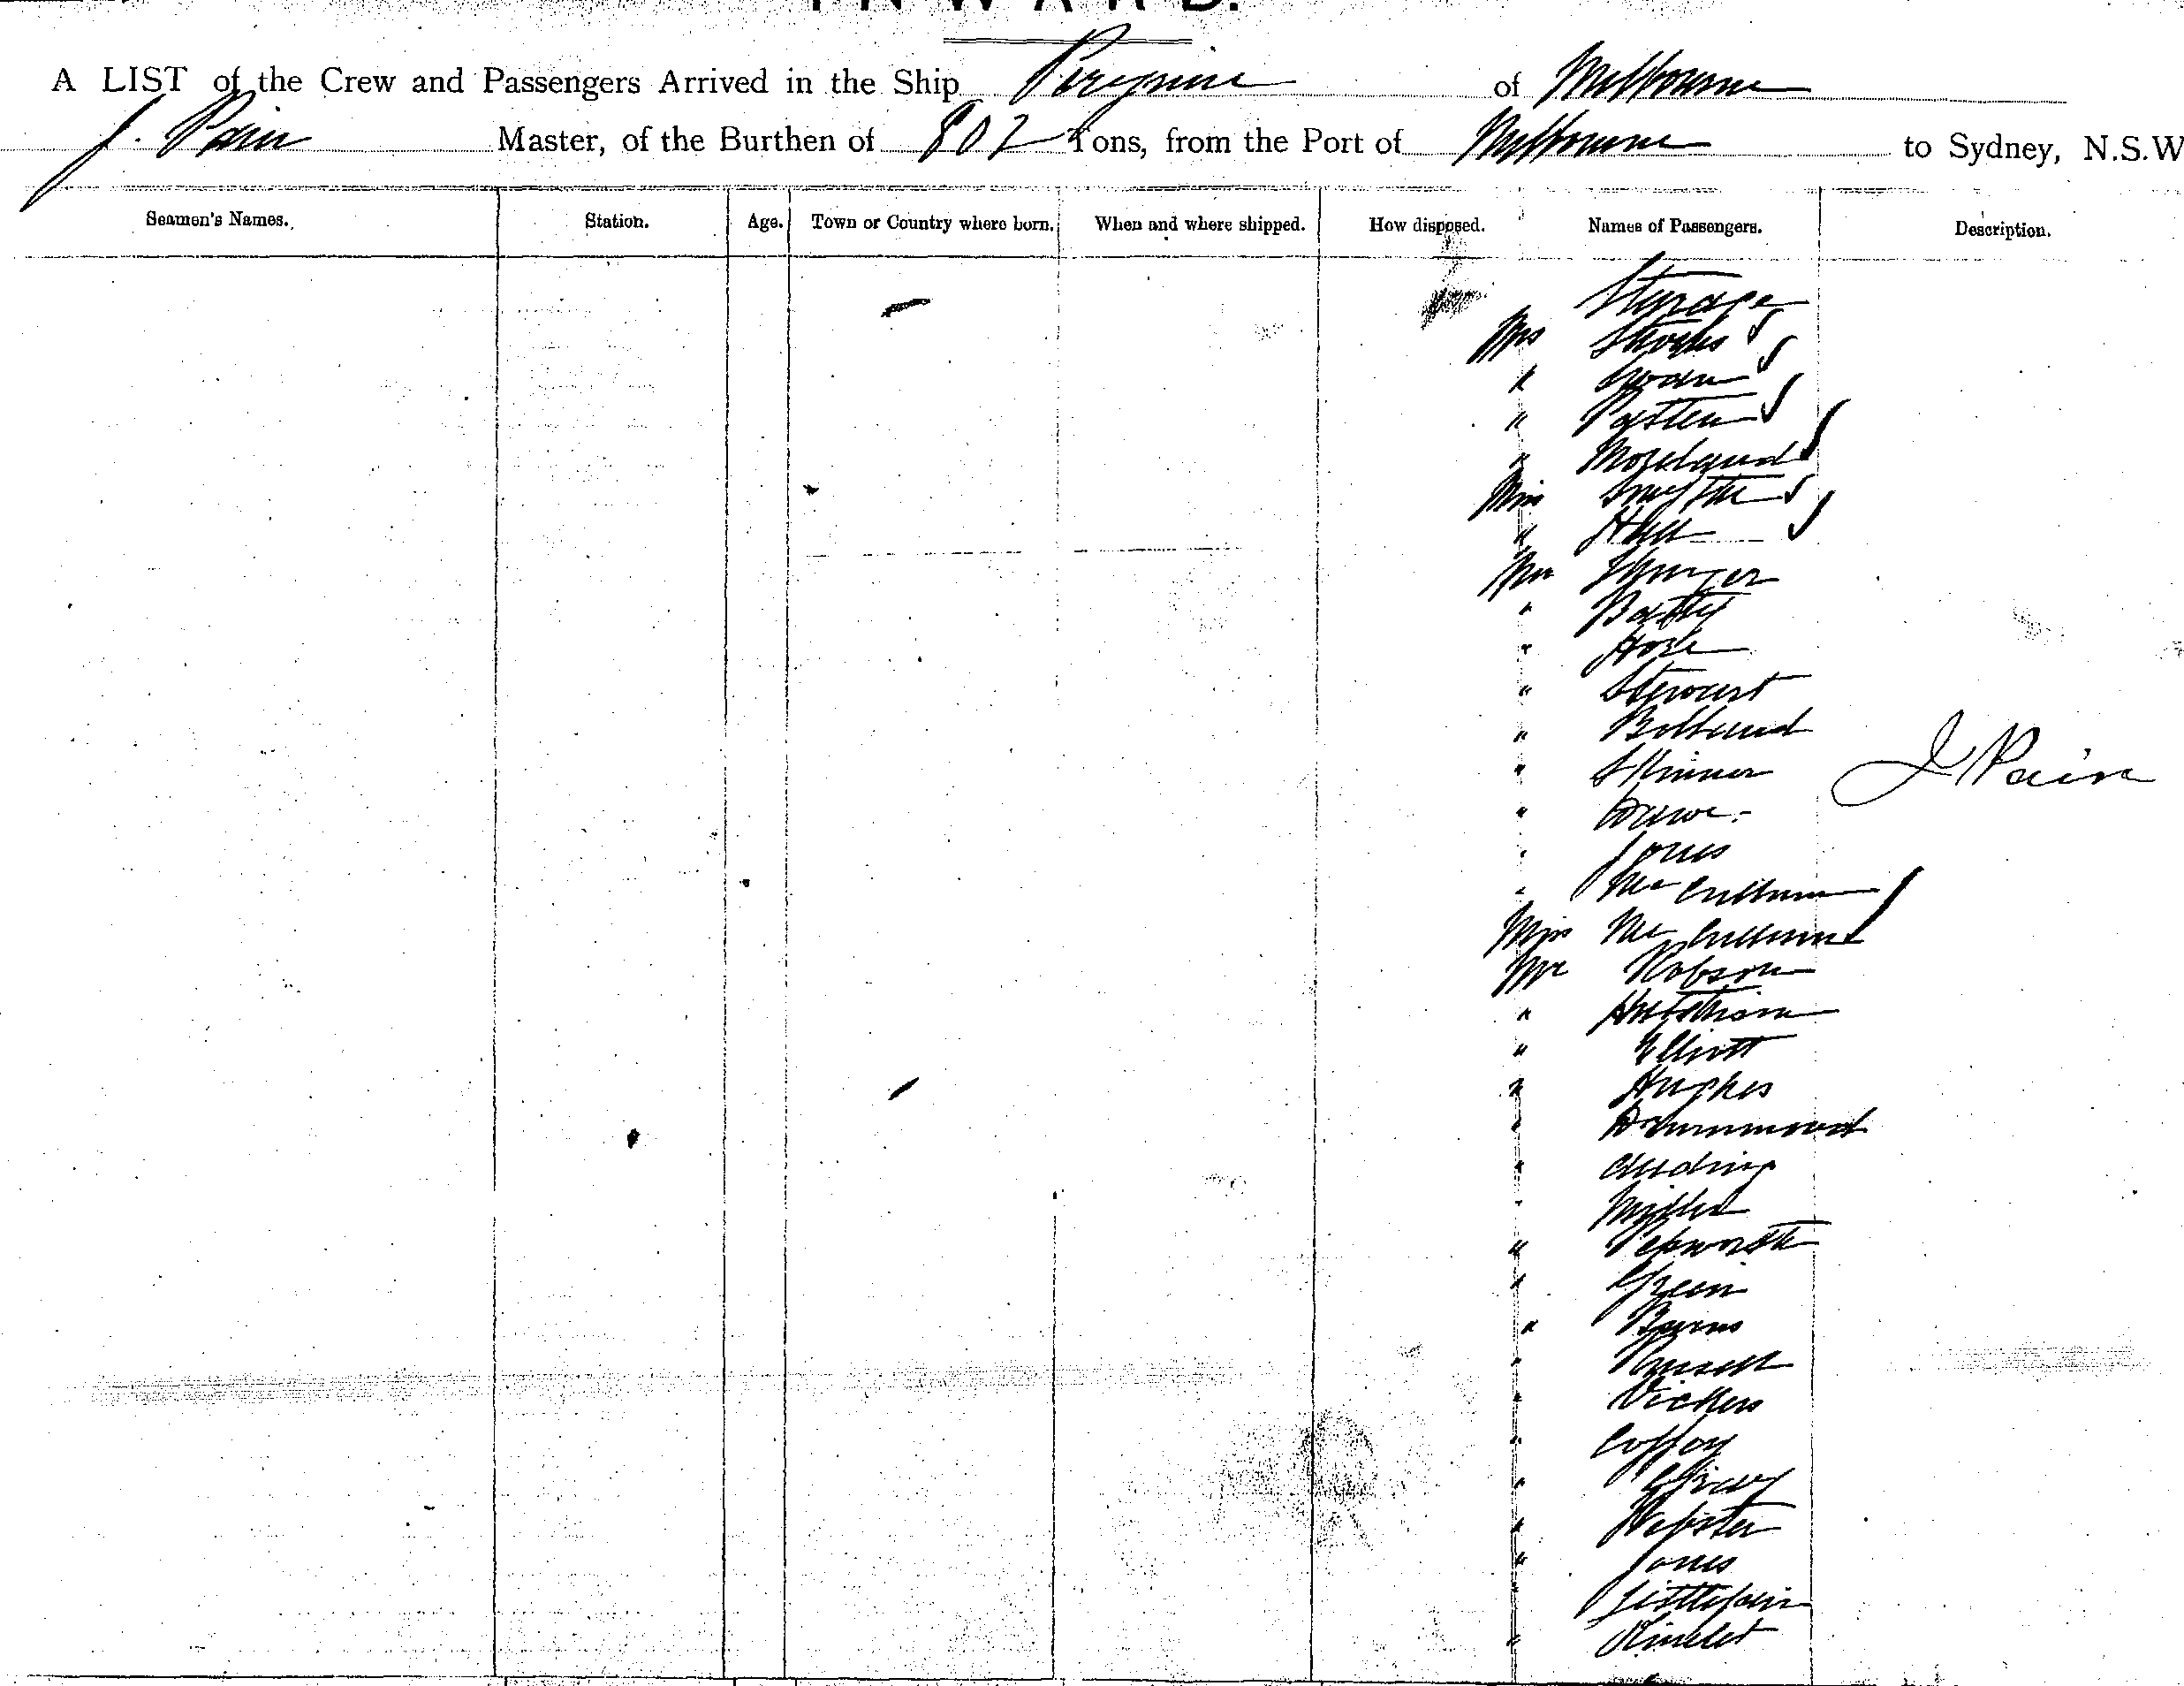 INWARD.
A LIST of the Crew and Passengers Arrived in the Ship Peregrine of Melbourne
J. Pain Master, of the Burthen of 802 Tons, from the Port of Melbourne to Sydney, N.S.W
Seamen's Names. Station. Age. Town or Country where born. When and where shipped. How disposed. Names of Passengers. Description.
Steerage
Mrs Stevens
"
" Patten
"
Miss Smythe
"
Mr
" Batty
" Hore
" Stewart
" Bolland
" Skinner
"
" Jones
" McCullum
Miss McCullum
Mr Robson
"
" Elliott
" Hughes
" Drummond
"
" Miller
" Pepworth
" Green
" Byrns
" Russell
" Vickers
" Coffey
" Gray
" Webster
" Jones
" Littlefair
"
J Pain